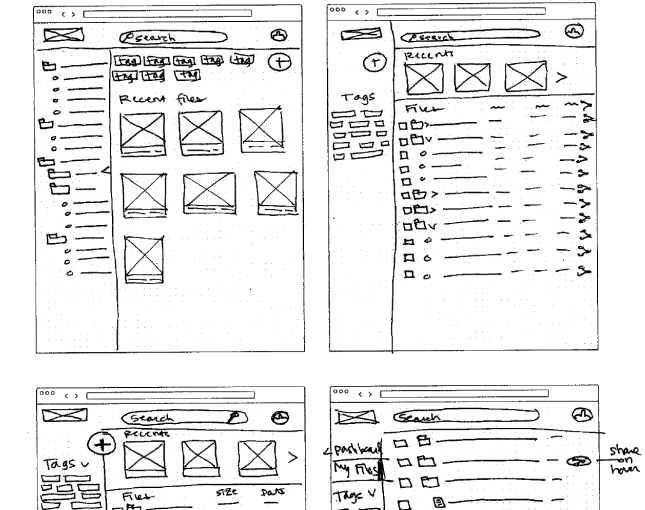 search
tag tag tag tag tag
tag tag tag
Recent files
search
Recents
Tags
Files
Search
Recents
Tags
Files size Date
Search
Dashboard
My Files
Tags
share
on
hover